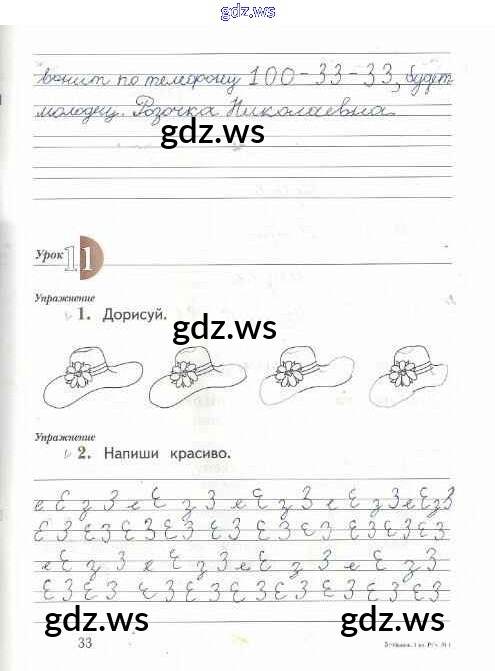 gdz.ws
вонит по телефону 100-33-33, будет
молодец. Розочка Николаевна.
gdz.ws
Урок 11
Упражнение
1. Дорисуй.
gdz.ws
Упражнение
2. Напиши красиво.
е Е з З е Е з З е Е з З е Е з З е Е з З
Е З Е З Е З Е З Е З Е З Е З Е З Е З Е З
е Е з З е Е з З е Е з З е Е з З
Е З Е З Е З Е З Е З Е З Е З Е З Е З
gdz.ws gdz.ws
33